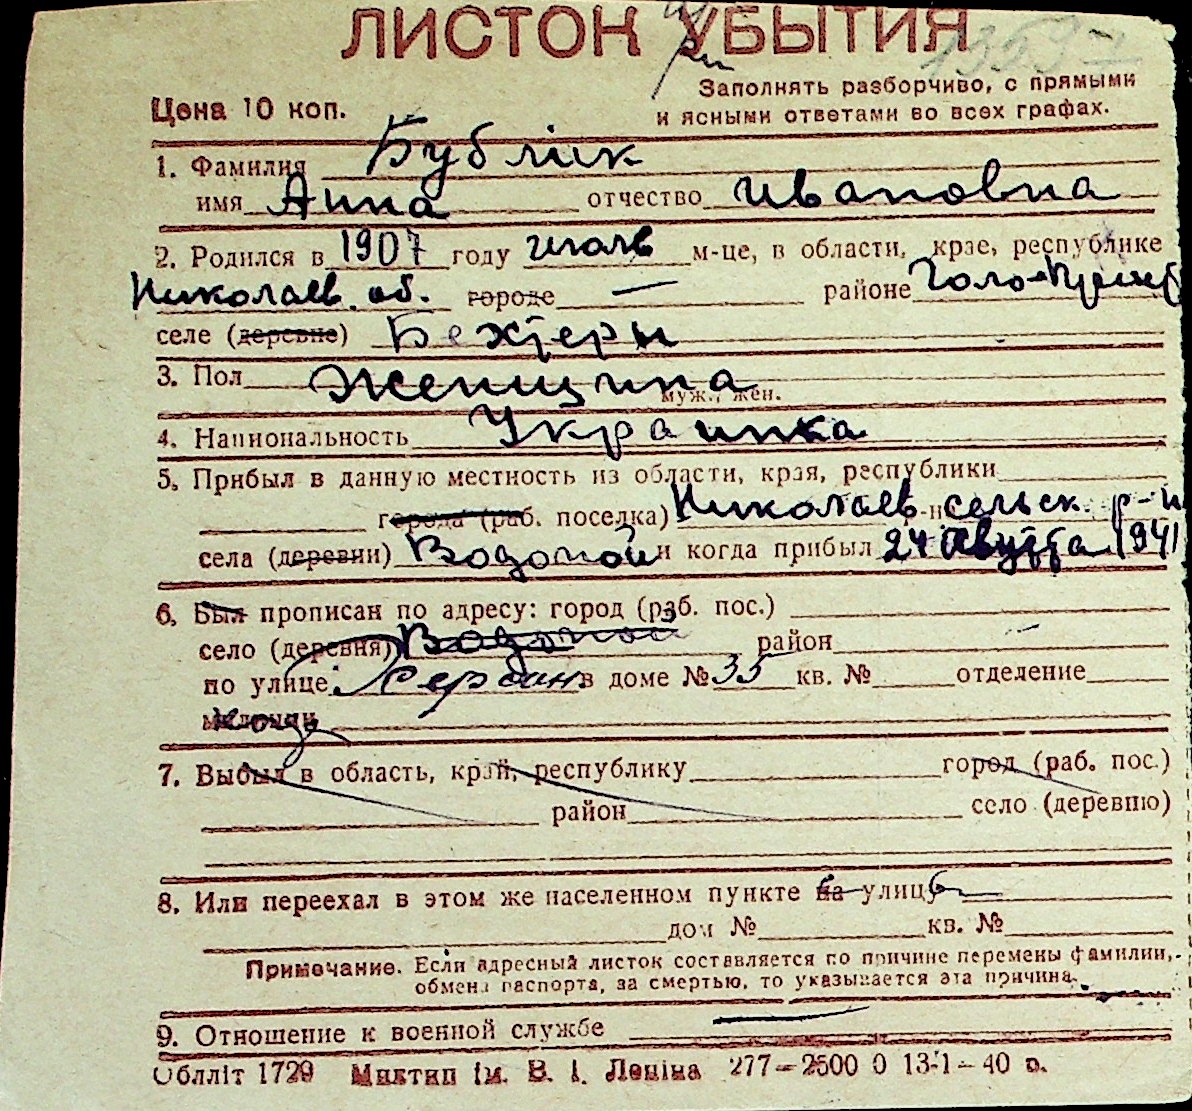 ЛИСТОК УБЫТИЯ
Заполнять разборчиво, с прямыми
Цена 10 коп.
и ясными ответами во всех графах.
1. Фамилия Бублик
имя Анна отчество Ивановна
2. Родился в 1907 году июль м-це, в области, крае, республике
Николаев. об. городе — районе Голо-Прист
селе (деревне) Бехтеры
3. Пол Женщина
муж., жен.
4. Национальность Украинка
5. Прибыл в данную местность из области, края, республики
города (раб. поселка) Николаев сельск. р-н
села (деревни) Водопой и когда прибыл 24 Августа 1941
6. Был прописан по адресу: город (раб. пос.)
село (деревня) Водопой район
по улице Херсон в доме № 35 кв. № отделение
милиции
7. Выбыл в область, край, республику город (раб. пос.)
район село (деревню)
8. Или переехал в этом же населенном пункте на улицу
дом № кв. №
Примечание. Если адресный листок составляется по причине перемены фамилии,
обмена паспорта, за смертью, то указывается эта причина.
9. Отношение к военной службе —
Облліт 1729 Миктип ім. В. І. Леніна 277—2500 0 13-1—40 р.